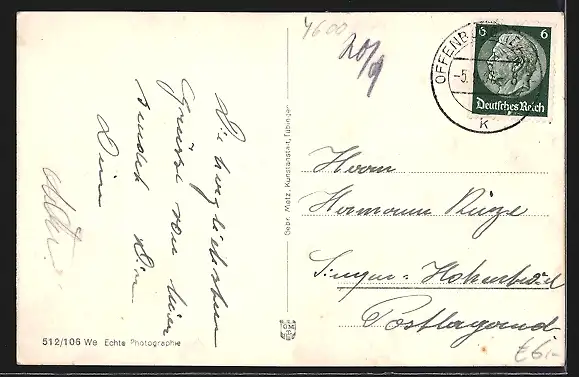 4600
20/9
OFFENBURG
-5.
K
6 6
Deutsches Reich
Die herzlichsten
Grüsse von hier
sendet Dir
Dein
Gebr. Metz, Kunstanstalt, Tübingen
Herrn
Hermann
Singen - Hohentwiel
Postlagernd
GM
512/106 We Echte Photographie
€6,-